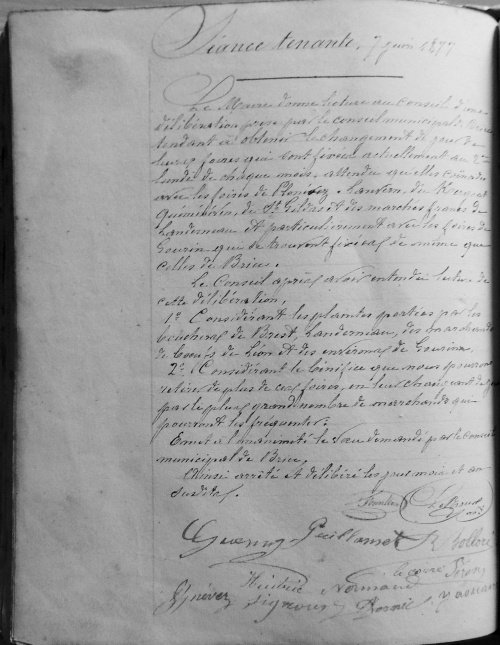 Séance tenante, 7 juin 1877
Le Maire donne lecture au Conseil d'une
délibération prise par le conseil municipal de Briec
tendant à obtenir le changement de jour de
leurs foires qui sont fixées actuellement au 2me
lundi de chaque mois, attendu qu'elles coïncident
avec les foires de
Quéménéven, de St et des marchés francs de
Landerneau et particulièrement avec les foires de
Gourin qui se trouvent fixées de même que
celles de Briec.
Le Conseil après avoir entendu lecture de
cette délibération,
1° Considérant les plaintes portées par les
bouchers de Brest, Landerneau, des marchands
de boeufs de Léon et des environs de Gourin
2° Considérant le bénéfice que nous pourrons
retirer de plus de ces foires, en leur changeant de jour
par le plus grand nombre de marchands qui
pourront les fréquenter.
Emet à l'unanimité le voeu demandé par le conseil
municipal de Briec.
Ainsi arrêté et délibéré les jour mois et an
susdits.
Normand